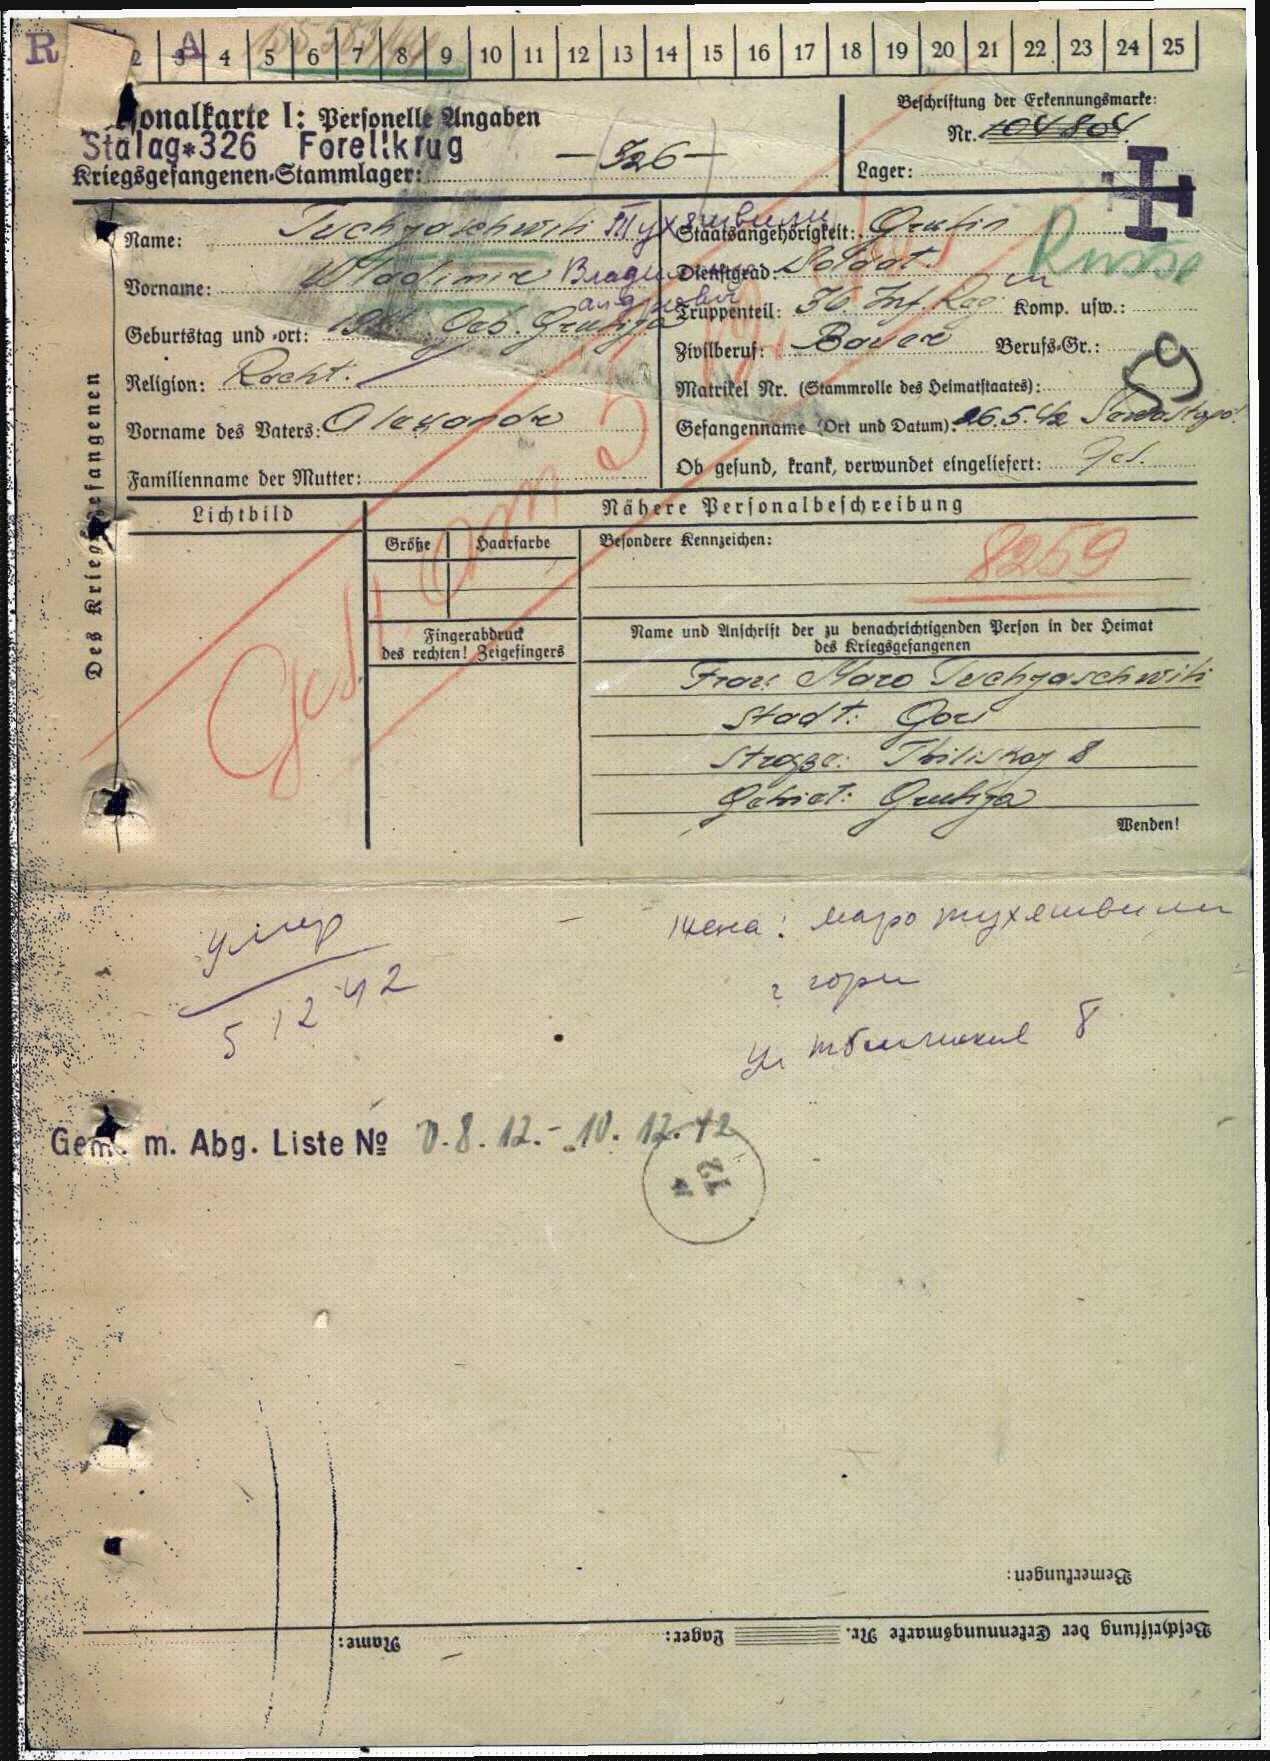 R A
2 3 4 5 6 7 8 9 10 11 12 13 14 15 16 17 18 19 20 21 22 23 24 25
sonalkarte I: Personelle Angaben
Stalag 326 Forellkrug
Kriegsgefangenen-Stammlager: — 326 —
Beschriftung der Erkennungsmarke:
Nr. 104804
Lager:
Des Kriegsgefangenen
Name: Tuchjaschwili Тухяшвили
Vorname: Wladimir Владимир
Geburtstag und -ort: Geb. Grusija
Religion: Rocht.
Vorname des Vaters: Alexandr
Familienname der Mutter:
Staatsangehörigkeit: Grusin
Russe
Dienstgrad: Soldat
Truppenteil: 36. Inf. Reg. Komp. usw.:
Zivilberuf: Bauer Berufs-Gr.:
Matrikel Nr. (Stammrolle des Heimatstaates):
Gefangennahme (Ort und Datum): 26.5.42 Sewastopol
Ob gesund, krank, verwundet eingeliefert: Ges.
Lichtbild
Nähere Personalbeschreibung
Größe Haarfarbe
Besondere Kennzeichen:
8259
Fingerabdruck
des rechten! Zeigefingers
Name und Anschrift der zu benachrichtigenden Person in der Heimat
des Kriegsgefangenen
Frau: Maro Tuchjaschwili
Stadt: Gori
Strasse: Tbiliskaj 8
Gebiet: Grusija
Wenden!
умер
5 12 42
Жена: маро тухяшвили
г гори
ул тбилиская 8
Gem. m. Abg. Liste № v. 8. 12. - 10. 12. 42
Bemerkungen:
Beschriftung der Erkennungsmarke Nr. Lager: Name: